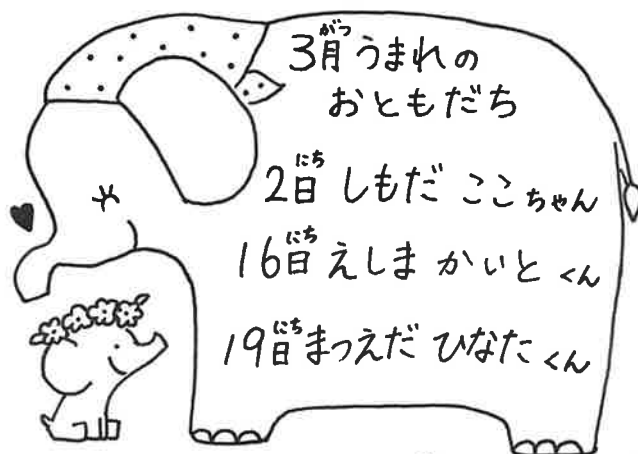 3月うまれの
おともだち
2日 しもだ ここちゃん
16日 えしま かいと くん
19日 まつえだ ひなた くん